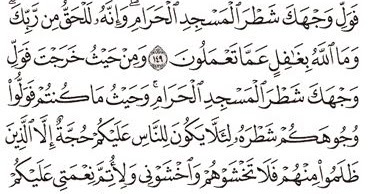 فَوَلِّ وَجْهَكَ شَطْرَ ٱلْمَسْجِدِ ٱلْحَرَامِ ۖ وَإِنَّهُۥ لَلْحَقُّ مِن رَّبِّكَ ۗ
وَمَا ٱللَّهُ بِغَـٰفِلٍ عَمَّا تَعْمَلُونَ ١٤٩ وَمِنْ حَيْثُ خَرَجْتَ فَوَلِّ
وَجْهَكَ شَطْرَ ٱلْمَسْجِدِ ٱلْحَرَامِ ۚ وَحَيْثُ مَا كُنتُمْ فَوَلُّوا۟
وُجُوهَكُمْ شَطْرَهُۥ لِئَلَّا يَكُونَ لِلنَّاسِ عَلَيْكُمْ حُجَّةٌ إِلَّا ٱلَّذِينَ
ظَلَمُوا۟ مِنْهُمْ فَلَا تَخْشَوْهُمْ وَٱخْشَوْنِى وَلِأُتِمَّ نِعْمَتِى عَلَيْكُمْ